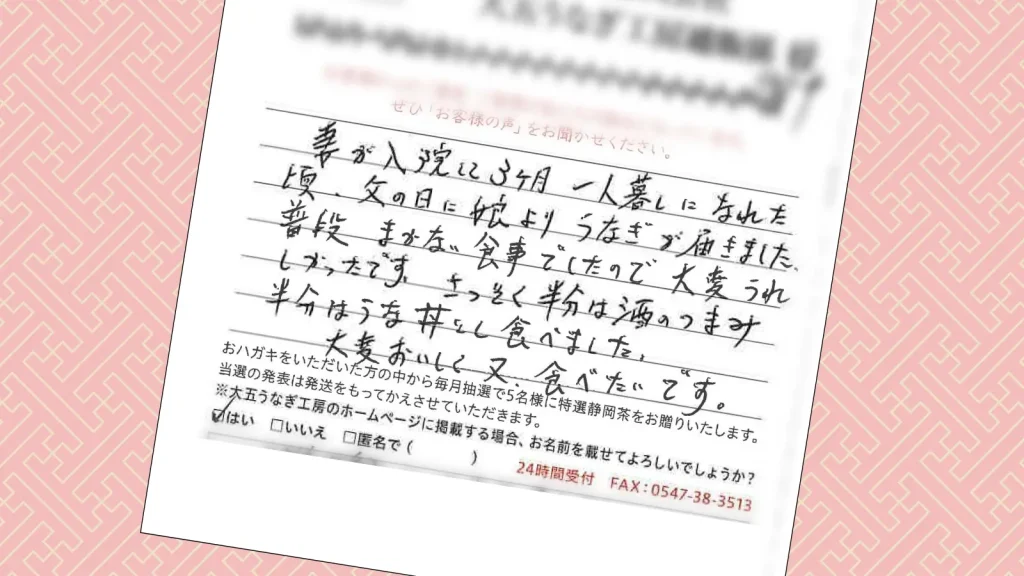 大五うなぎ工房
ぜひ「お客様の声」をお聞かせください。
妻が入院して3ケ月 一人暮しになれた
頃、父の日に娘より うなぎが届きました、
普段 まかない食事でしたので 大変うれ
しかったです。さっそく半分は酒のつまみ
半分はうな丼にし食べました。
大変おいしく又、食べたいです。
おハガキをいただいた方の中から毎月抽選で5名様に特選静岡茶をお贈りいたします。
当選の発表は発送をもってかえさせていただきます。
※大五うなぎ工房のホームページに掲載する場合、お名前を載せてよろしいでしょうか?
☑はい □いいえ □匿名で( )
24時間受付 FAX:0547-38-3513